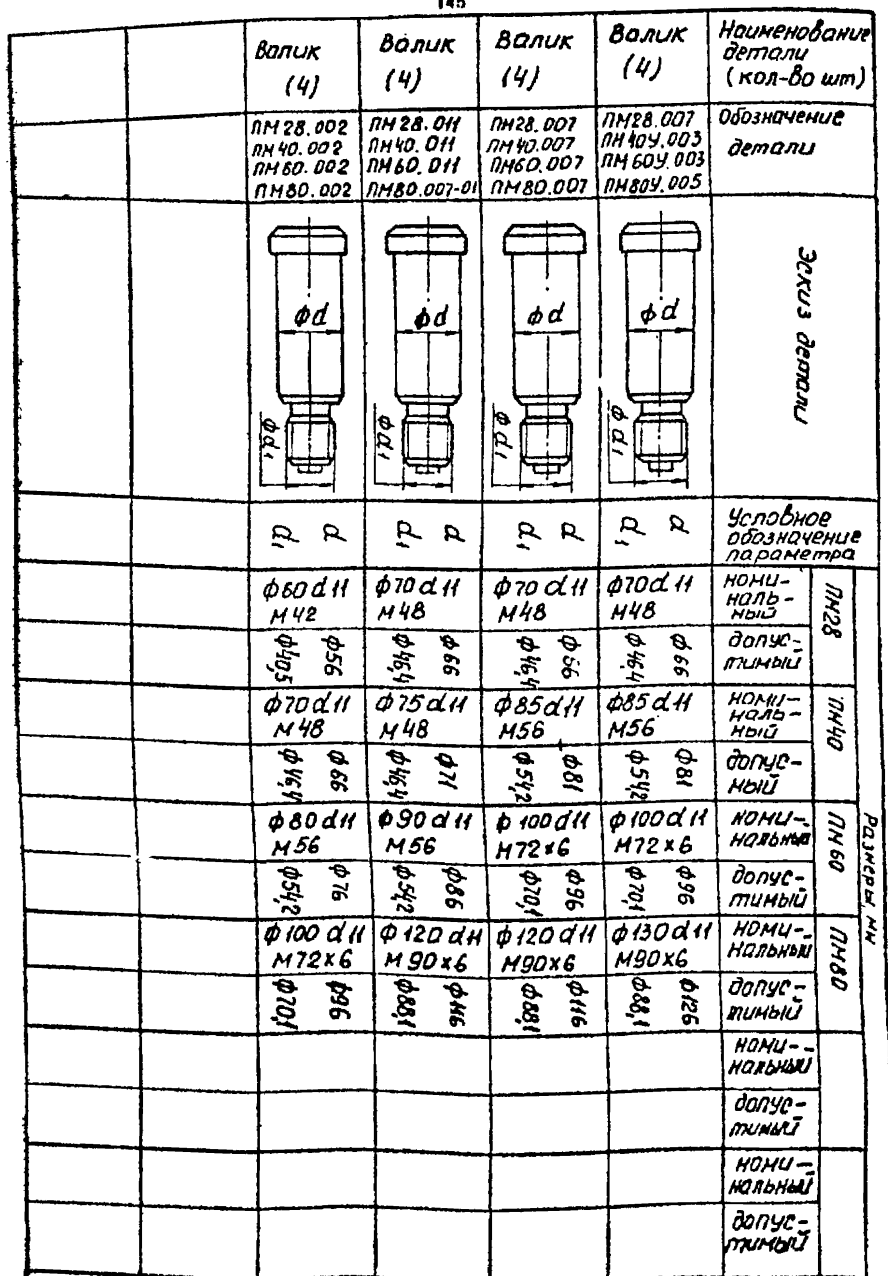 145
Валик
(4)
Валик
(4)
Валик
(4)
Валик
(4)
Наименование
детали
(кол-во шт)
ПМ28.002
ПМ40.002
ПМ60.002
ПМ80.002
ПМ28.011
ПМ40.011
ПМ60.011
ПМ80.007-01
ПМ28.007
ПМ40.007
ПМ60.007
ПМ80.007
ПМ28.007
ПМ40У.003
ПМ60У.003
ПМ80У.005
Обозначение
детали
ϕd
ϕd₁
ϕd
ϕd₁
ϕd
ϕd₁
ϕd
ϕd₁
Эскиз детали
d₁ d
d₁ d
d₁ d
d₁ d
Условное
обозначение
параметра
Размеры, мм
ϕ60d11
М42
ϕ70d11
М48
ϕ70d11
М48
ϕ70d11
М48
номи-
наль-
ный
ПМ28
ϕ40,5 ϕ56
ϕ46,4 ϕ66
ϕ46,4 ϕ66
ϕ46,4 ϕ66
допус-
тимый
ϕ70d11
М48
ϕ75d11
М48
ϕ85d11
М56
ϕ85d11
М56
номи-
наль-
ный
ПМ40
ϕ46,4 ϕ66
ϕ46,4 ϕ71
ϕ54,2 ϕ81
ϕ54,2 ϕ81
допус-
ный
ϕ80d11
М56
ϕ90d11
М56
ϕ100d11
М72×6
ϕ100d11
М72×6
номи-
нальный
ПМ60
ϕ54,2 ϕ76
ϕ54,2 ϕ86
ϕ70,1 ϕ96
ϕ70,1 ϕ96
допус-
тимый
ϕ100d11
М72×6
ϕ120d11
М90×6
ϕ120d11
М90×6
ϕ130d11
М90×6
номи-
нальный
ПМ80
ϕ70,1 ϕ96
ϕ88,1 ϕ116
ϕ88,1 ϕ116
ϕ88,1 ϕ126
допус-
тимый
номи-
нальный
допус-
тимый
номи-
нальный
допус-
тимый